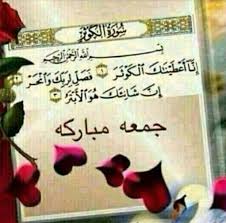 سُورَةُ الكَوْثَر
بِسْمِ اللَّهِ الرَّحْمَٰنِ الرَّحِيمِ
إِنَّا أَعْطَيْنَاكَ الْكَوْثَرَ ١ فَصَلِّ لِرَبِّكَ وَانْحَرْ ٢
إِنَّ شَانِئَكَ هُوَ الْأَبْتَرُ ٣
جمعه مباركه